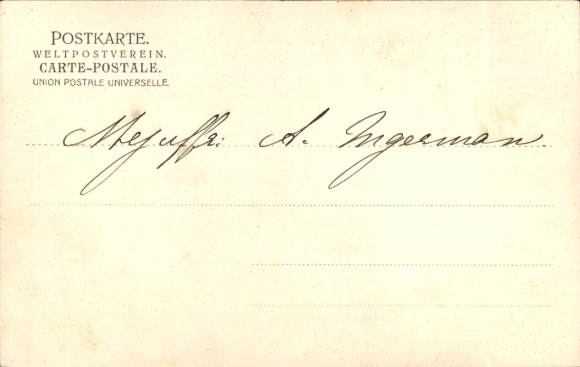 POSTKARTE.
WELTPOSTVEREIN.
CARTE-POSTALE.
UNION POSTALE UNIVERSELLE.
Mejuffr: A. Ingerman.